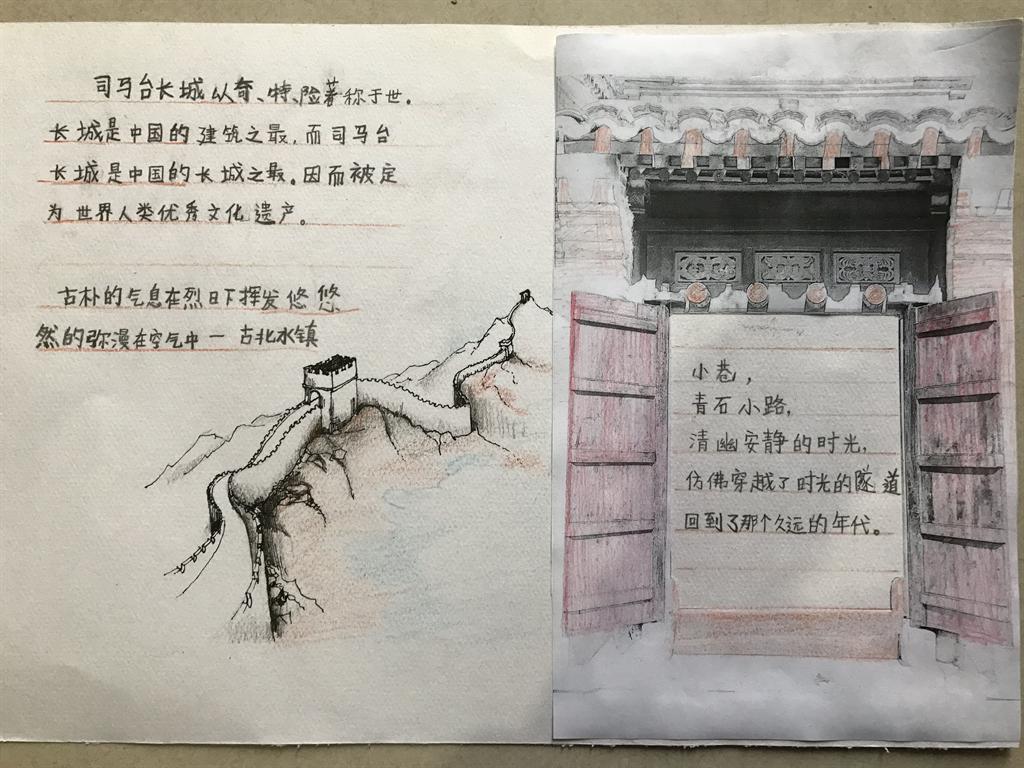 司马台长城以奇、特、险著称于世.
长城是中国的建筑之最,而司马台
长城是中国的长城之最。因而被定
为世界人类优秀文化遗产。
古朴的气息在烈日下挥发悠悠
然的弥漫在空气中一古北水镇
小巷,
青石小路,
清幽安静的时光,
仿佛穿越了时光的隧道
回到了那个久远的年代。